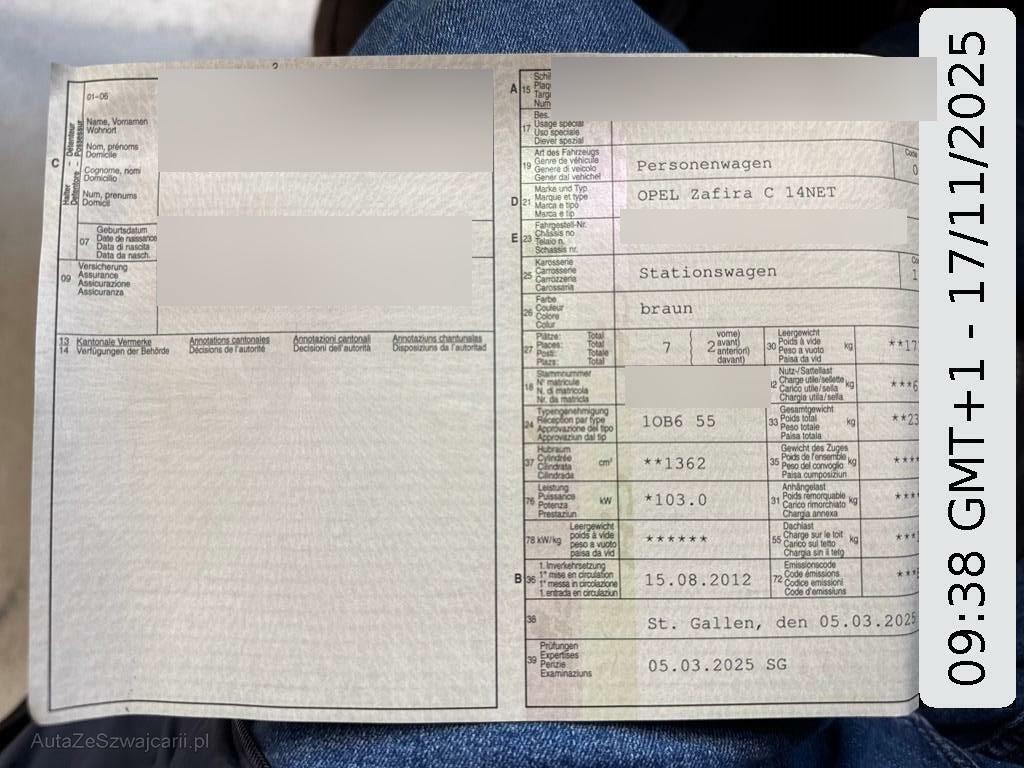 C
Halter - Détenteur
Detentore - Possessur
01-06
Name, Vornamen
Wohnort
Nom, prénoms
Domicile
Cognome, nomi
Domicilio
Num, prenums
Domicil
07
Geburtsdatum
Date de naissance
Data di nascita
Data da nasch.
09
Versicherung
Assurance
Assicurazione
Assicuranza
13 Kantonale Vermerke Annotations cantonales Annotazioni cantonali Annotaziuns chantunalas
14 Verfügungen der Behörde Décisions de l'autorité Decisioni dell'autorità Disposiziuns da l'autoritad
A 15
17
Bes.
Usage spécial
Uso speciale
Diever spezial
19
Art des Fahrzeugs
Genre de véhicule
Genere di veicolo
Gener dal vehichel
Personenwagen
D 21
Marke und Typ
Marque et type
Marca e tipo
Marca e tip
OPEL Zafira C 14NET
E 23
Fahrgestell-Nr.
Châssis no
Telaio n.
Schassis nr.
25
Karosserie
Carrosserie
Carrozzeria
Carossaria
Stationswagen
26
Farbe
Couleur
Colore
Colur
braun
27
Plätze: Total
Places: Total
Posti: Totale
Plazs: Total
7
2
vorne)
avant)
anteriori)
davant)
30
Leergewicht
Poids à vide
Peso a vuoto
Paisa da vid
kg
**17
18
Stammnummer
N° matricule
N. di matricola
Nr. da matricla
Nutz-/Sattellast
Charge utile/sellette
Carico utile/sella
Chargia utila/sella
kg
***6
24
Typengenehmigung
Réception par type
Approvazione del tipo
Approvaziun dal tip
1OB6 55
33
Gesamtgewicht
Poids total
Peso totale
Paisa totala
kg
**23
37
Hubraum
Cylindrée
Cilindrata
Cilindrada
cm³
**1362
35
Gewicht des Zuges
Poids de l'ensemble
Peso del convoglio
Paisa cumposiziun
kg
76
Leistung
Puissance
Potenza
Prestaziun
kW
*103.0
31
Anhängelast
Poids remorquable
Carico rimorchiato
Chargia annexa
kg
78 kW/kg
Leergewicht
poids à vide
peso a vuoto
paisa da vid
******
55
Dachlast
Charge sur le toit
Carico sul tetto
Chargia sin il tetg
kg
B 36
1. Inverkehrsetzung
1re mise en circulation
1a messa in circolazione
1. entrada en circulaziun
15.08.2012
72
Emissionscode
Code émissions
Codice emissioni
Code d'emissiuns
38
St. Gallen, den 05.03.2025
39
Prüfungen
Expertises
Perizie
Examinaziuns
05.03.2025 SG
09:38 GMT+1 - 17/11/2025
AutaZeSzwajcarii.pl